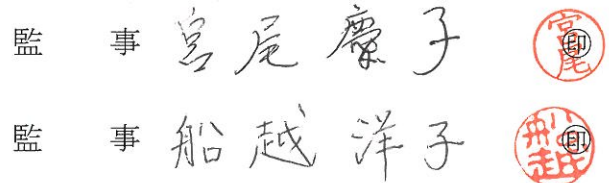 監事 宮尾慶子 ㊞
監事 船越洋子 ㊞